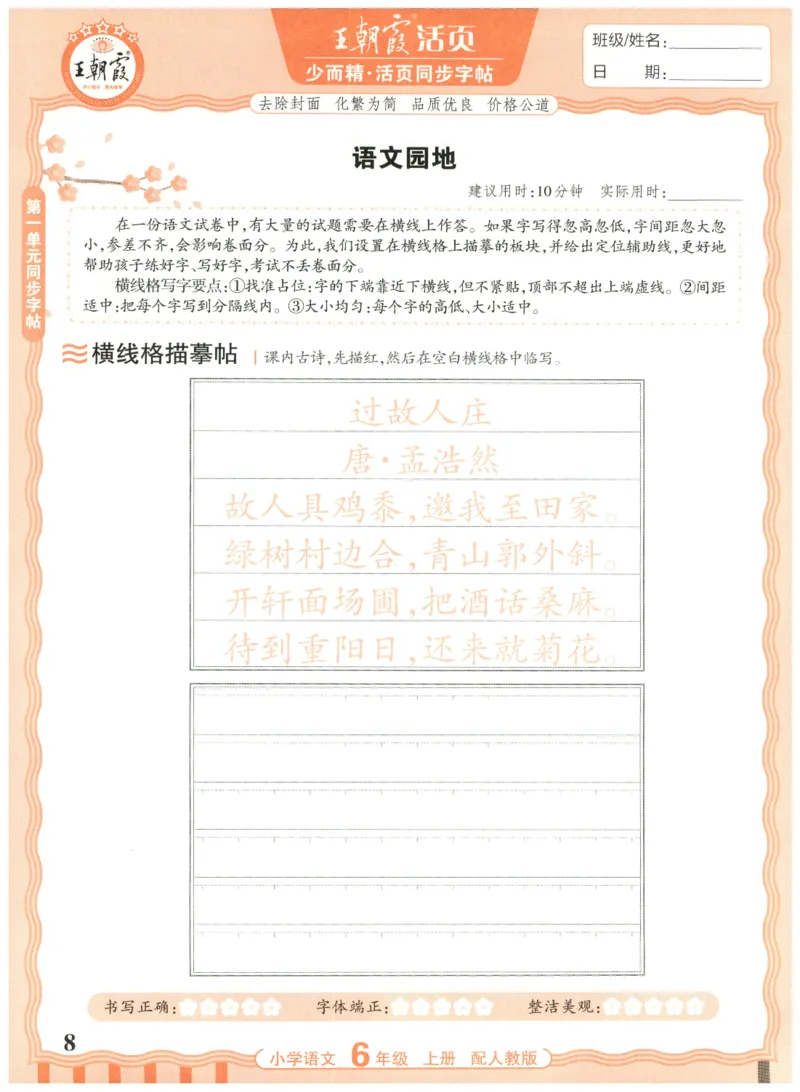 王朝霞
王朝霞活页
少而精·活页同步字帖
班级/姓名:
日 期:
去除封面 化繁为简 品质优良 价格公道
语文园地
建议用时:10分钟 实际用时:
第一单元同步字帖
在一份语文试卷中,有大量的试题需要在横线上作答。如果字写得忽高忽低,字间距忽大忽
小,参差不齐,会影响卷面分。为此,我们设置在横线格上描摹的板块,并给出定位辅助线,更好地
帮助孩子练好字、写好字,考试不丢卷面分。
横线格写字要点:①找准占位:字的下端靠近下横线,但不紧贴,顶部不超出上端虚线。②间距
适中:把每个字写到分隔线内。③大小均匀:每个字的高低、大小适中。
横线格描摹帖 课内古诗,先描红,然后在空白横线格中临写。
过故人庄
唐·孟浩然
故人具鸡黍,邀我至田家。
绿树村边合,青山郭外斜。
开轩面场圃,把酒话桑麻。
待到重阳日,还来就菊花。
书写正确: 字体端正: 整洁美观:
8
小学语文 6年级 上册 配人教版